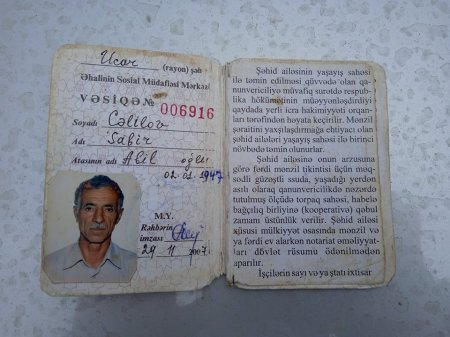 Ucar (rayon) şəh
Əhalinin Sosial Müdafiəsi Mərkəzi
VƏSİQƏ № 006916
Soyadı Cəlilov
Adı Sabir
Atasının adı Abil oğlu
02.01.1947
M.Y.
Rəhbərin
imzası
29 11 2007
Şəhid ailəsinin yaşayış sahəsi
ilə təmin edilməsi qüvvədə olan qa-
nunvericiliyə müvafiq surətdə respub-
lika hökümətinin müəyyənləşdirdiyi
qaydada yerli icra hakimiyyəti orqan-
ları tərəfindən həyata keçirilir. Mənzil
şəraitini yaxşılaşdırmağa ehtiyacı olan
şəhid ailələri yaşayış sahəsi ilə birinci
növbədə təmin olunurlar.
Şəhid ailəsinə onun arzusuna
görə fərdi mənzil tikintisi üçün məq-
sədli güzəştli ssuda, yaşadığı yerdən
asılı olaraq qanunvericilikdə nəzərdə
tutulmuş ölçüdə torpaq sahəsi, habelə
bağçılıq birliyinə (kooperativə) qəbul
zamanı üstünlük verilir. Şəhid ailəsi
xüsusi mülkiyyət əsasında mənzil və
ya fərdi ev alarkən notariat əməliyyat-
ları dövlət rüsumu ödənilmədən
aparılır.
İşçilərin sayı və ya ştatı ixtisar